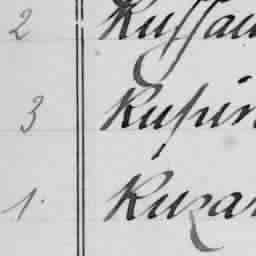 2 Kussau
3 Kupin
1. Kuzar